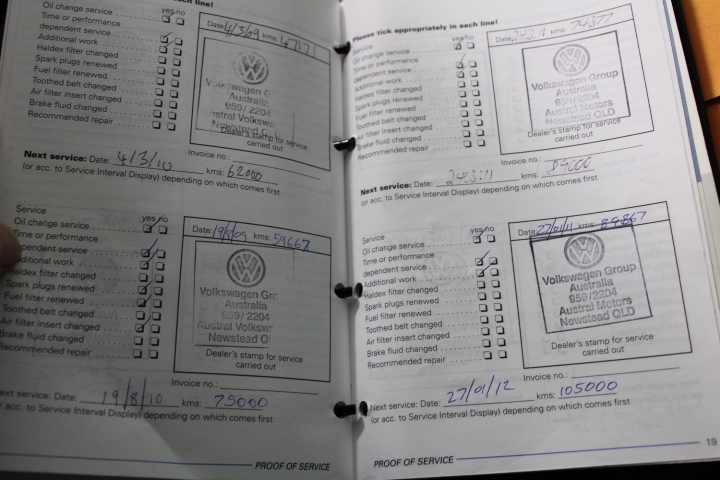 each line!
Oil change service yes no
Time or performance
dependent service
Additional work
Haldex filter changed
Spark plugs renewed
Fuel filter renewed
Toothed belt changed
Air filter insert changed
Brake fluid changed
Recommended repair
Date: 4/3/09 kms: 47171
Volkswagen G
Australia
959/2204
stral Volksw
Newstead Q
Dealer's stamp for service
carried out
Invoice no.:
Next service: Date: 4/3/10 kms: 62000
(or acc. to Service Interval Display) depending on which comes first
Service
yes no
Oil change service
Time or performance
dependent service
Additional work
Haldex filter changed
Spark plugs renewed
Fuel filter renewed
Toothed belt changed
Air filter insert changed
Brake fluid changed
Recommended repair
Date: 19/8/09 kms: 59667
Volkswagen Gr
Australia
959/2204
Austral Volksw
Newstead Q
Dealer's stamp for service
carried out
Invoice no.:
ext service: Date: 19/8/10 kms: 75000
r acc. to Service Interval Display) depending on which comes first
PROOF OF SERVICE
Please tick appropriately in each line!
Service yes no
Oil change service
Time or performance
dependent service
Additional work
Haldex filter changed
Spark plugs renewed
Fuel filter renewed
Toothed belt changed
Air filter insert changed
Brake fluid changed
Recommended repair
Date: kms: 74377
Volkswagen Group
Australia
959/2204
Austral Motors
Newstead QLD
Dealer's stamp for service
carried out
Invoice no.:
Next service: Date: kms: 89000
(or acc. to Service Interval Display) depending on which comes first
Service yes no
Oil change service
Time or performance
dependent service
Additional work
Haldex filter changed
Spark plugs renewed
Fuel filter renewed
Toothed belt changed
Air filter insert changed
Brake fluid changed
Recommended repair
Date: 27/01/11 kms: 89867
Volkswagen Group
Australia
959/2204
Austral Motors
Newstead QLD
Dealer's stamp for service
carried out
Invoice no.:
Next service: Date: 27/01/12 kms: 105000
(or acc. to Service Interval Display) depending on which comes first
PROOF OF SERVICE
19